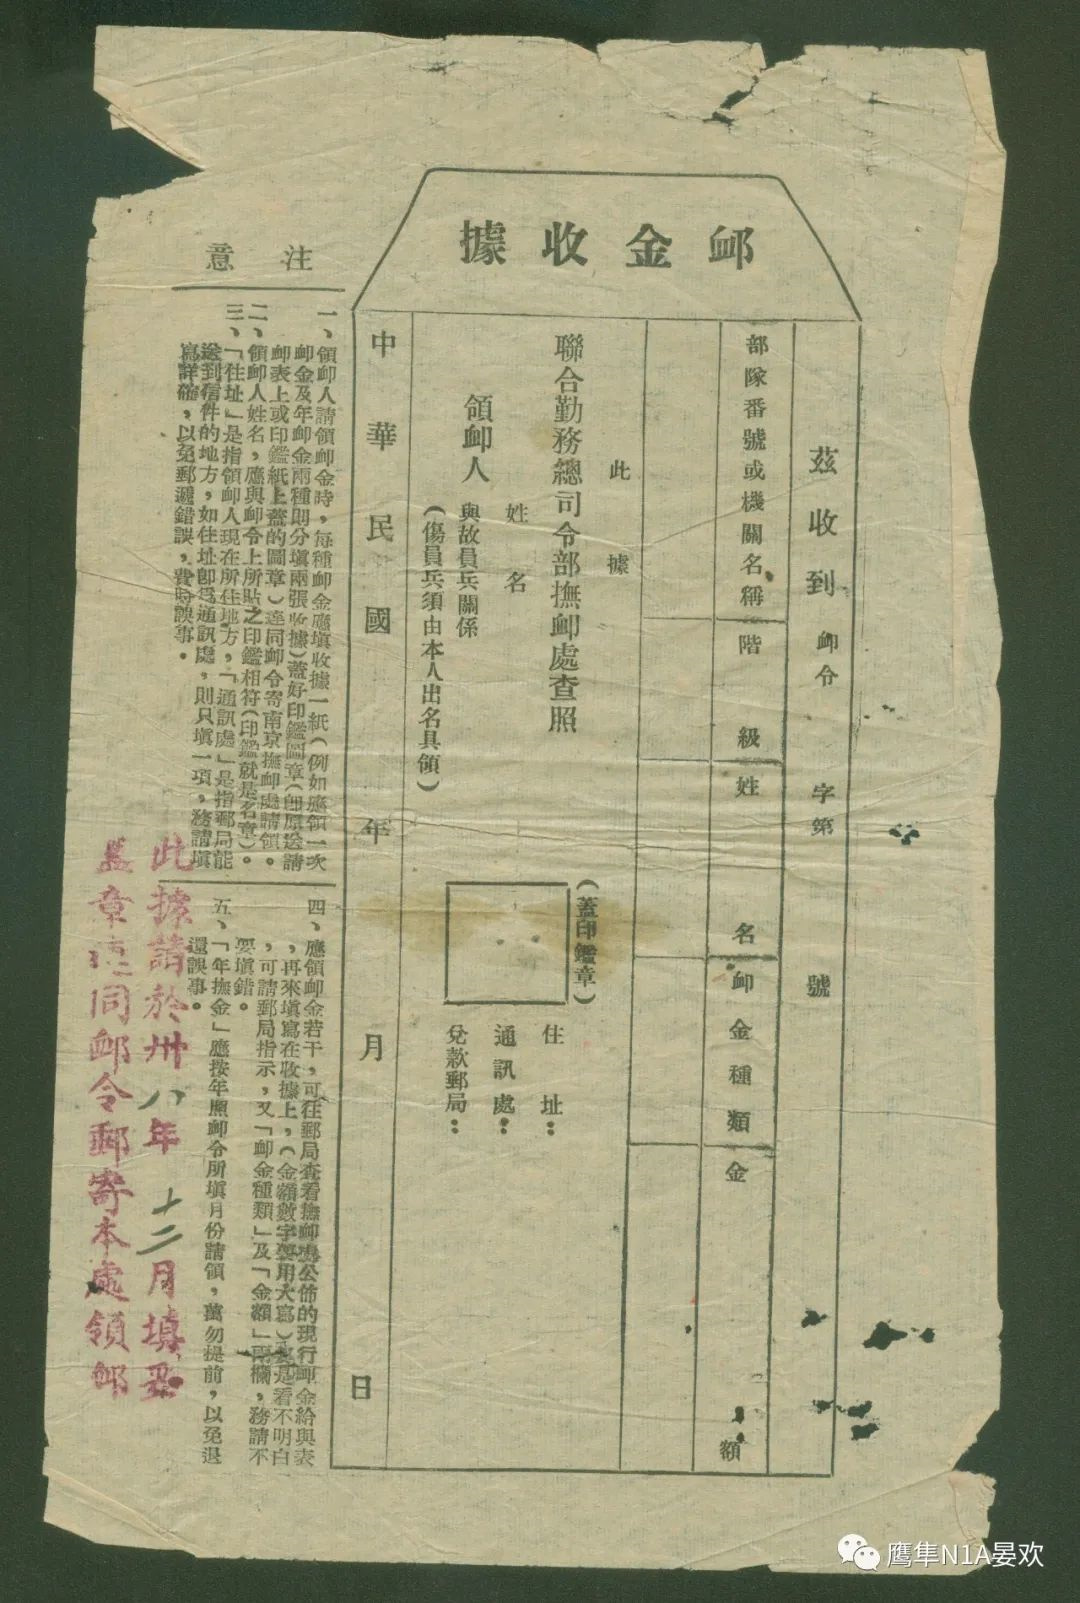 卹金收據
茲收到卹令 字第 號
部隊番號或機關名稱
階級
姓名
卹金種類
金額
此據
聯合勤務總司令部撫卹處查照
(蓋印鑑章)
領卹人
姓名
與故員兵關係
(傷員兵須由本人出名具領)
住址:
通訊處:
兌款郵局:
中華民國 年 月 日
注意
一、領卹人請領卹金時,每種卹金應填收據一紙(例如應領一次
卹金及年卹金兩種則分填兩張收據)蓋好印鑑圖章(卽原送請
卹表上或印鑑紙上蓋的圖章)連同卹令寄南京撫卹處請領。
二、領卹人姓名,應與卹令上所貼之印鑑相符(印鑑就是名章)。
三、「住址」是指領卹人現在所住地方,「通訊處」是指郵局能
送到信件的地方,如住址卽爲通訊處,則只填一項,務請填
寫詳確,以免郵遞錯誤,費時誤事。
四、應領卹金若干,可往郵局查看撫卹處公佈的現行卹金給與表
,再來填寫在收據上,(金額數字要用大寫)要是看不明白
,可請郵局指示,又「卹金種類」及「金額」兩欄,務請不
要填錯。
五、「年撫金」應按年照卹令所填月份請領,萬勿提前,以免退
還誤事。
此據請於卅八年十二月填妥
蓋章連同卹令郵寄本處領卹
鹰隼N1A晏欢